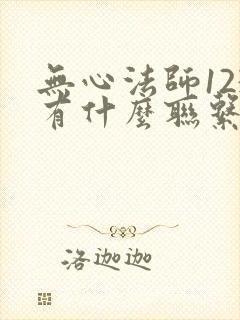 無心法師12
有什麼聯繫
洛迦迦